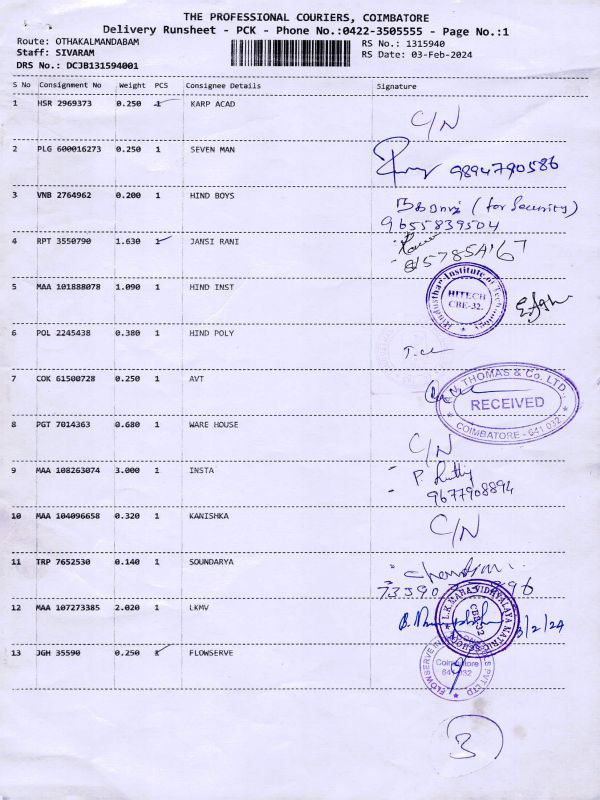 THE PROFESSIONAL COURIERS, COIMBATORE
Delivery Runsheet - PCK - Phone No.:0422-3505555 - Page No.:1
Route: OTHAKALMANDABAM
RS No.: 1315940
Staff: SIVARAM
RS Date: 03-Feb-2024
DRS No.: DCJB131594001
S No Consignment No Weight PCS Consignee Details Signature
1 HSR 2969373 0.250 1 KARP ACAD
C/N
2 PLG 600016273 0.250 1 SEVEN MAN
9894790586
3 VNB 2764962 0.200 1 HIND BOYS
(for Security)
9655839504
4 RPT 3550790 1.630 1 JANSI RANI
5 MAA 101888078 1.090 1 HIND INST
Hindusthan Institute of Tech
HITECH
CBE-32.
6 POL 2245438 0.380 1 HIND POLY
7 COK 61500728 0.250 1 AVT
THOMAS & Co. LTD.,
RECEIVED
COIMBATORE - 641 032
8 PGT 7014363 0.680 1 WARE HOUSE
C/N
9 MAA 108263074 3.000 1 INSTA
9677908894
10 MAA 104096658 0.320 1 KANISHKA
C/N
11 TRP 7652530 0.140 1 SOUNDARYA
12 MAA 107273385 2.020 1 LKMV
VIDHYALAYA MATRIC
3/2/24
13 JGH 35590 0.250 1 FLOWSERVE
FLOWSERVE
Coimbatore
PVT LTD
3